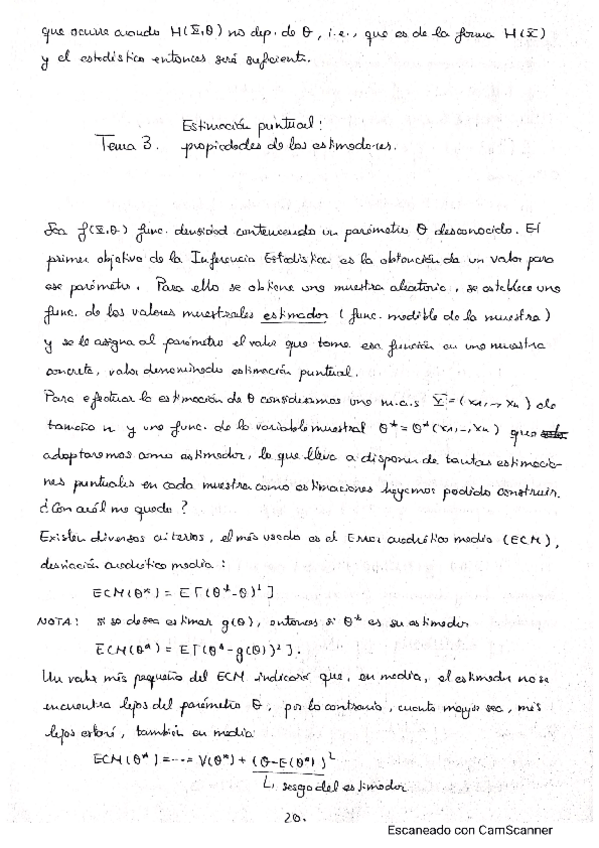 que ocurre cuando H(X,θ) no dep. de θ, i.e., que es de la forma H(X)
y el estadístico entonces será suficiente.
Estimación puntual:
Tema 3. propiedades de los estimadores.
Sea f(X,θ) func. densidad conteniendo un parámetro θ desconocido. El
primer objetivo de la Inferencia Estadística es la obtención de un valor para
ese parámetro. Para ello se obtiene una muestra aleatoria, se establece una
func. de los valores muestrales estimador (func. medible de la muestra)
y se le asigna al parámetro el valor que toma esa función en una muestra
concreta, valor denominado estimación puntual.
Para efectuar la estimación de θ consideramos una m.a.s X=(x1,-,xn) de
tamaño n y una func. de la variable muestral θ*=θ*(x1,-,xn) que
adoptaremos como estimador, lo que lleva a disponer de tantas estimacio-
nes puntuales en cada muestra como estimaciones hayamos podido construir.
¿Con cuál me quedo?
Existen diversos criterios, el más usado es el Error cuadrático medio (ECM),
desviación cuadrática media:
ECM(θ*) = E[(θ*-θ)²]
NOTA: si se desea estimar g(θ), entonces si θ* es su estimador
ECM(θ*) = E[(θ*-g(θ))²].
Un valor más pequeño del ECM indicará que, en media, el estimador no se
encuentra lejos del parámetro θ, por lo contrario, cuanto mayor sea, más
lejos estará, también en media
ECM(θ*) =---= V(θ*) + (θ-E(θ*))²
↳ sesgo del estimador
20.
Escaneado con CamScanner